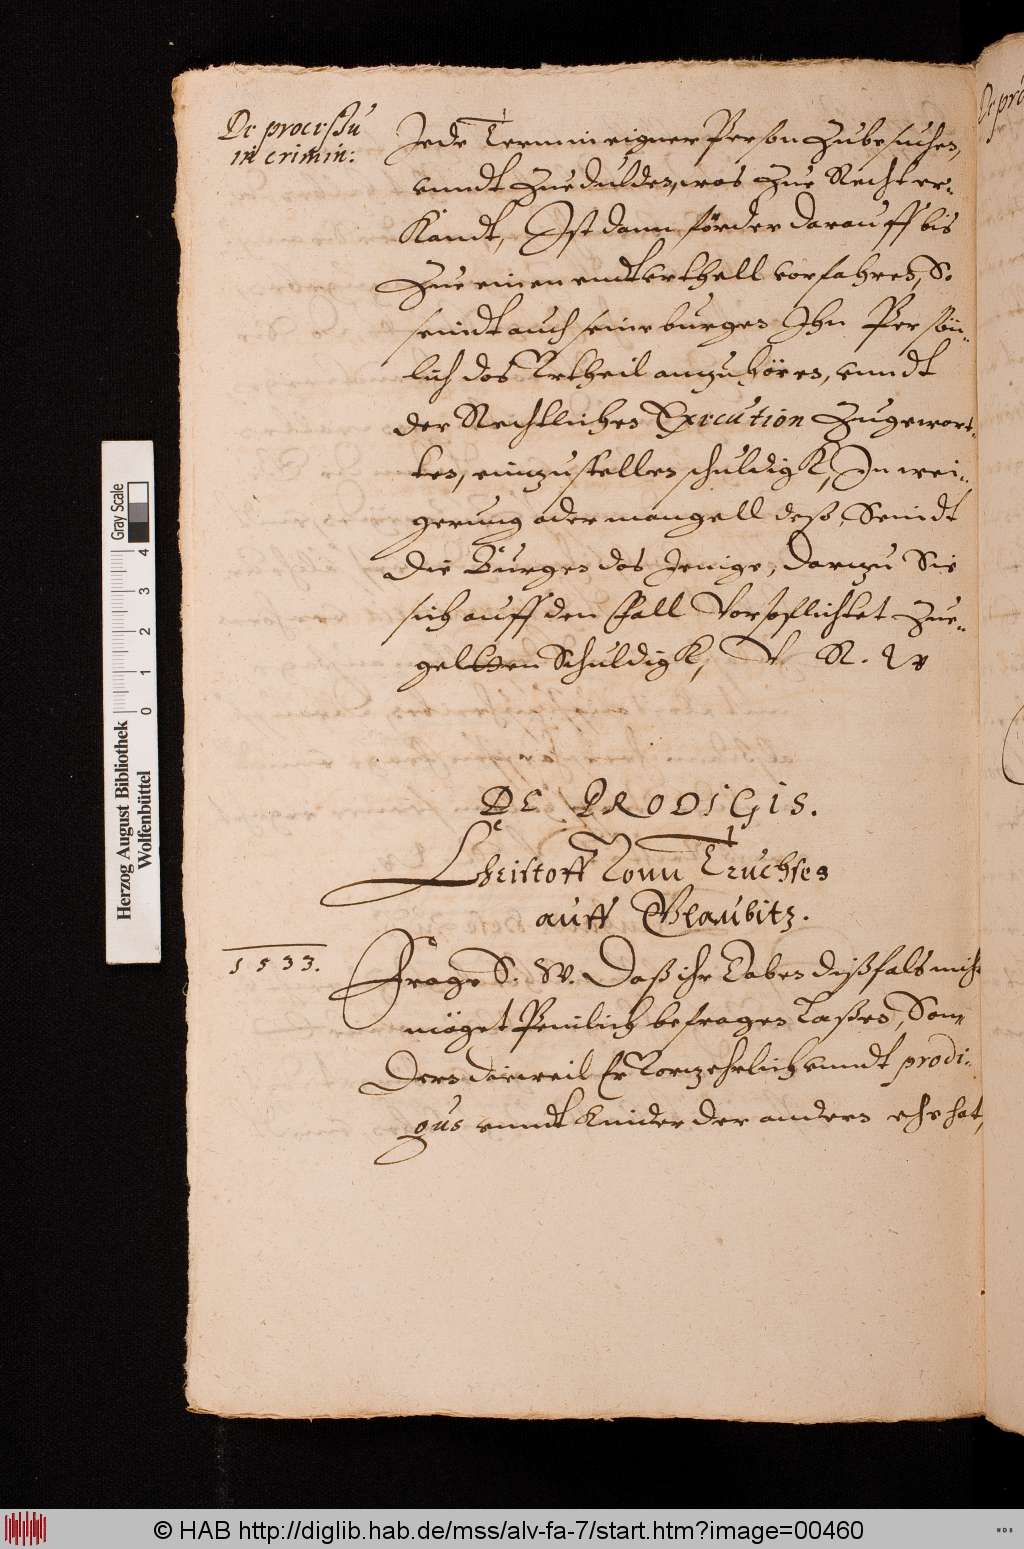 De processu
in crimin:
Jede Termin eigner Person Zubesuchen,
vnndt Zuedulden, was Zue Recht er-
Kandt, Ist dann förder darauff bis
Zue einen endt vrthell vorfahren, So
seindt auch seine burgen Ihn Persön-
lich das Vrtheil anzuhören, vnndt
der Rechtlichen Execution Zugewart-
ten, einzustellen schuldigk, In wei-
gerung oder mangell deß, Seindt
die Bürgen das Jenige, darzu Sie
sich auff den Fall Vorpflichtet Zue-
gelten Schuldigk, V R. W
DE PRODIGIS.
Christoff Vonn Truchses
auff
1533.
Frage S: W. Daß ihr Taben dißfals nicht
möget Peinlich befragen Laßen, Son-
dern dieweil Er Vorzehrlich vnndt prodi-
gus vnndt Kinder der andern ehe hat,
Gray Scale
0 1 2 3 4
Herzog August Bibliothek
Wolfenbüttel
© HAB http://diglib.hab.de/mss/alv-fa-7/start.htm?image=00460